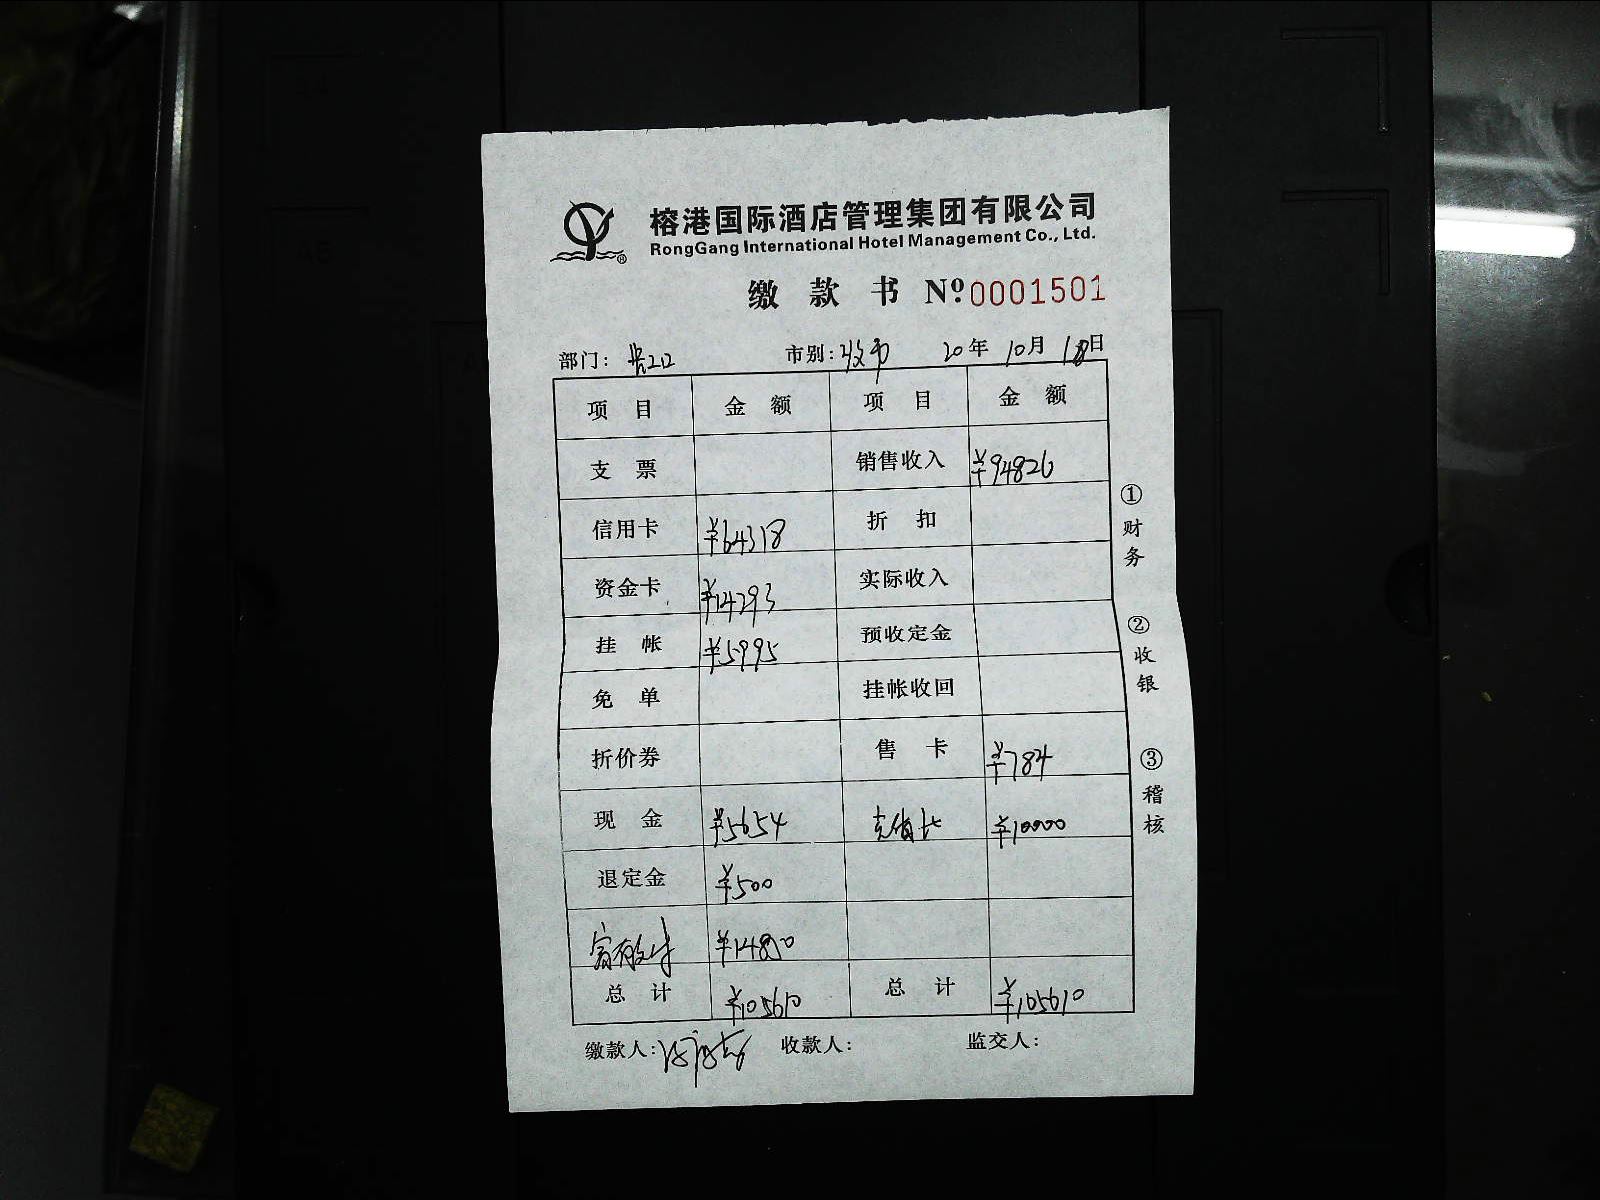 榕港国际酒店管理集团有限公司
RongGang International Hotel Management Co., Ltd.
缴款书 Nº 0001501
部门: 市别: 20年 10月 18日
项目 金额 项目 金额
支票 销售收入 ¥94826
信用卡 ¥64318 折扣
资金卡 ¥14293 实际收入
挂帐 ¥5995 预收定金
免单 挂帐收回
折价券 售卡 ¥784
现金 ¥5654 ¥10000
退定金 ¥500
¥14850
总计 ¥105610 总计 ¥105610
缴款人: 收款人: 监交人:
①财务 ②收银 ③稽核